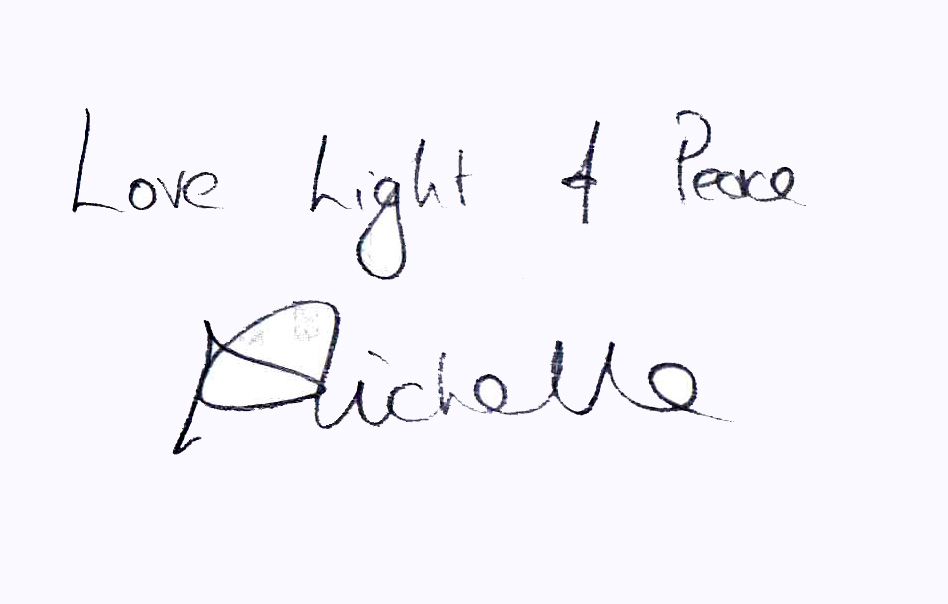 Love Light & Peace
Michelle